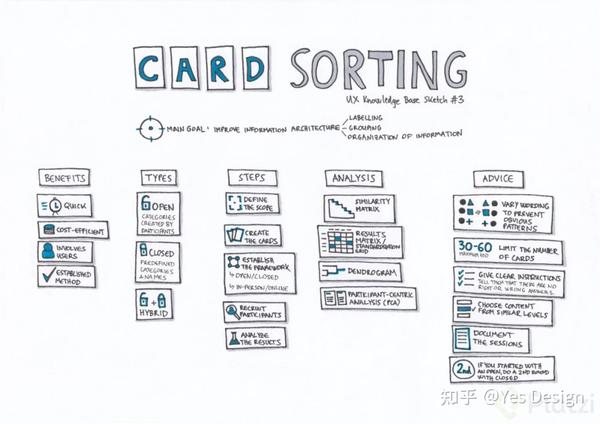 CARD SORTING
UX Knowledge Base Sketch #3
MAIN GOAL: IMPROVE INFORMATION ARCHITECTURE
LABELLING
GROUPING
ORGANIZATION OF INFORMATION
BENEFITS
QUICK
COST-EFFICIENT
INVOLVES
USERS
ESTABLISHED
METHOD
TYPES
OPEN
CATEGORIES
CREATED BY
PARTICIPANTS
CLOSED
PREDEFINED
CATEGORIES
& NAMES
+
HYBRID
STEPS
DEFINE
THE SCOPE
CREATE
THE CARDS
ESTABLISH
THE FRAMEWORK
↳ OPEN/CLOSED
↳ IN-PERSON/ONLINE
RECRUIT
PARTICIPANTS
ANALYZE
THE RESULTS
ANALYSIS
SIMILARITY
MATRIX
RESULTS
MATRIX/
STANDARDIZATION
GRID
DENDROGRAM
PARTICIPANT-CENTRIC
ANALYSIS (PCA)
ADVICE
VARY WORDING
TO PREVENT
OBVIOUS
PATTERNS
30-60
LIMIT THE NUMBER
OF CARDS
GIVE CLEAR INSTRUCTIONS
TELL THEM THAT THERE ARE NO
RIGHT OR WRONG ANSWERS
CHOOSE CONTENT
FROM SIMILAR LEVELS
DOCUMENT
THE SESSIONS
2nd
IF YOU STARTED WITH
AN OPEN, DO A 2ND ROUND
WITH CLOSED
知乎 @Yes Design
Platzi